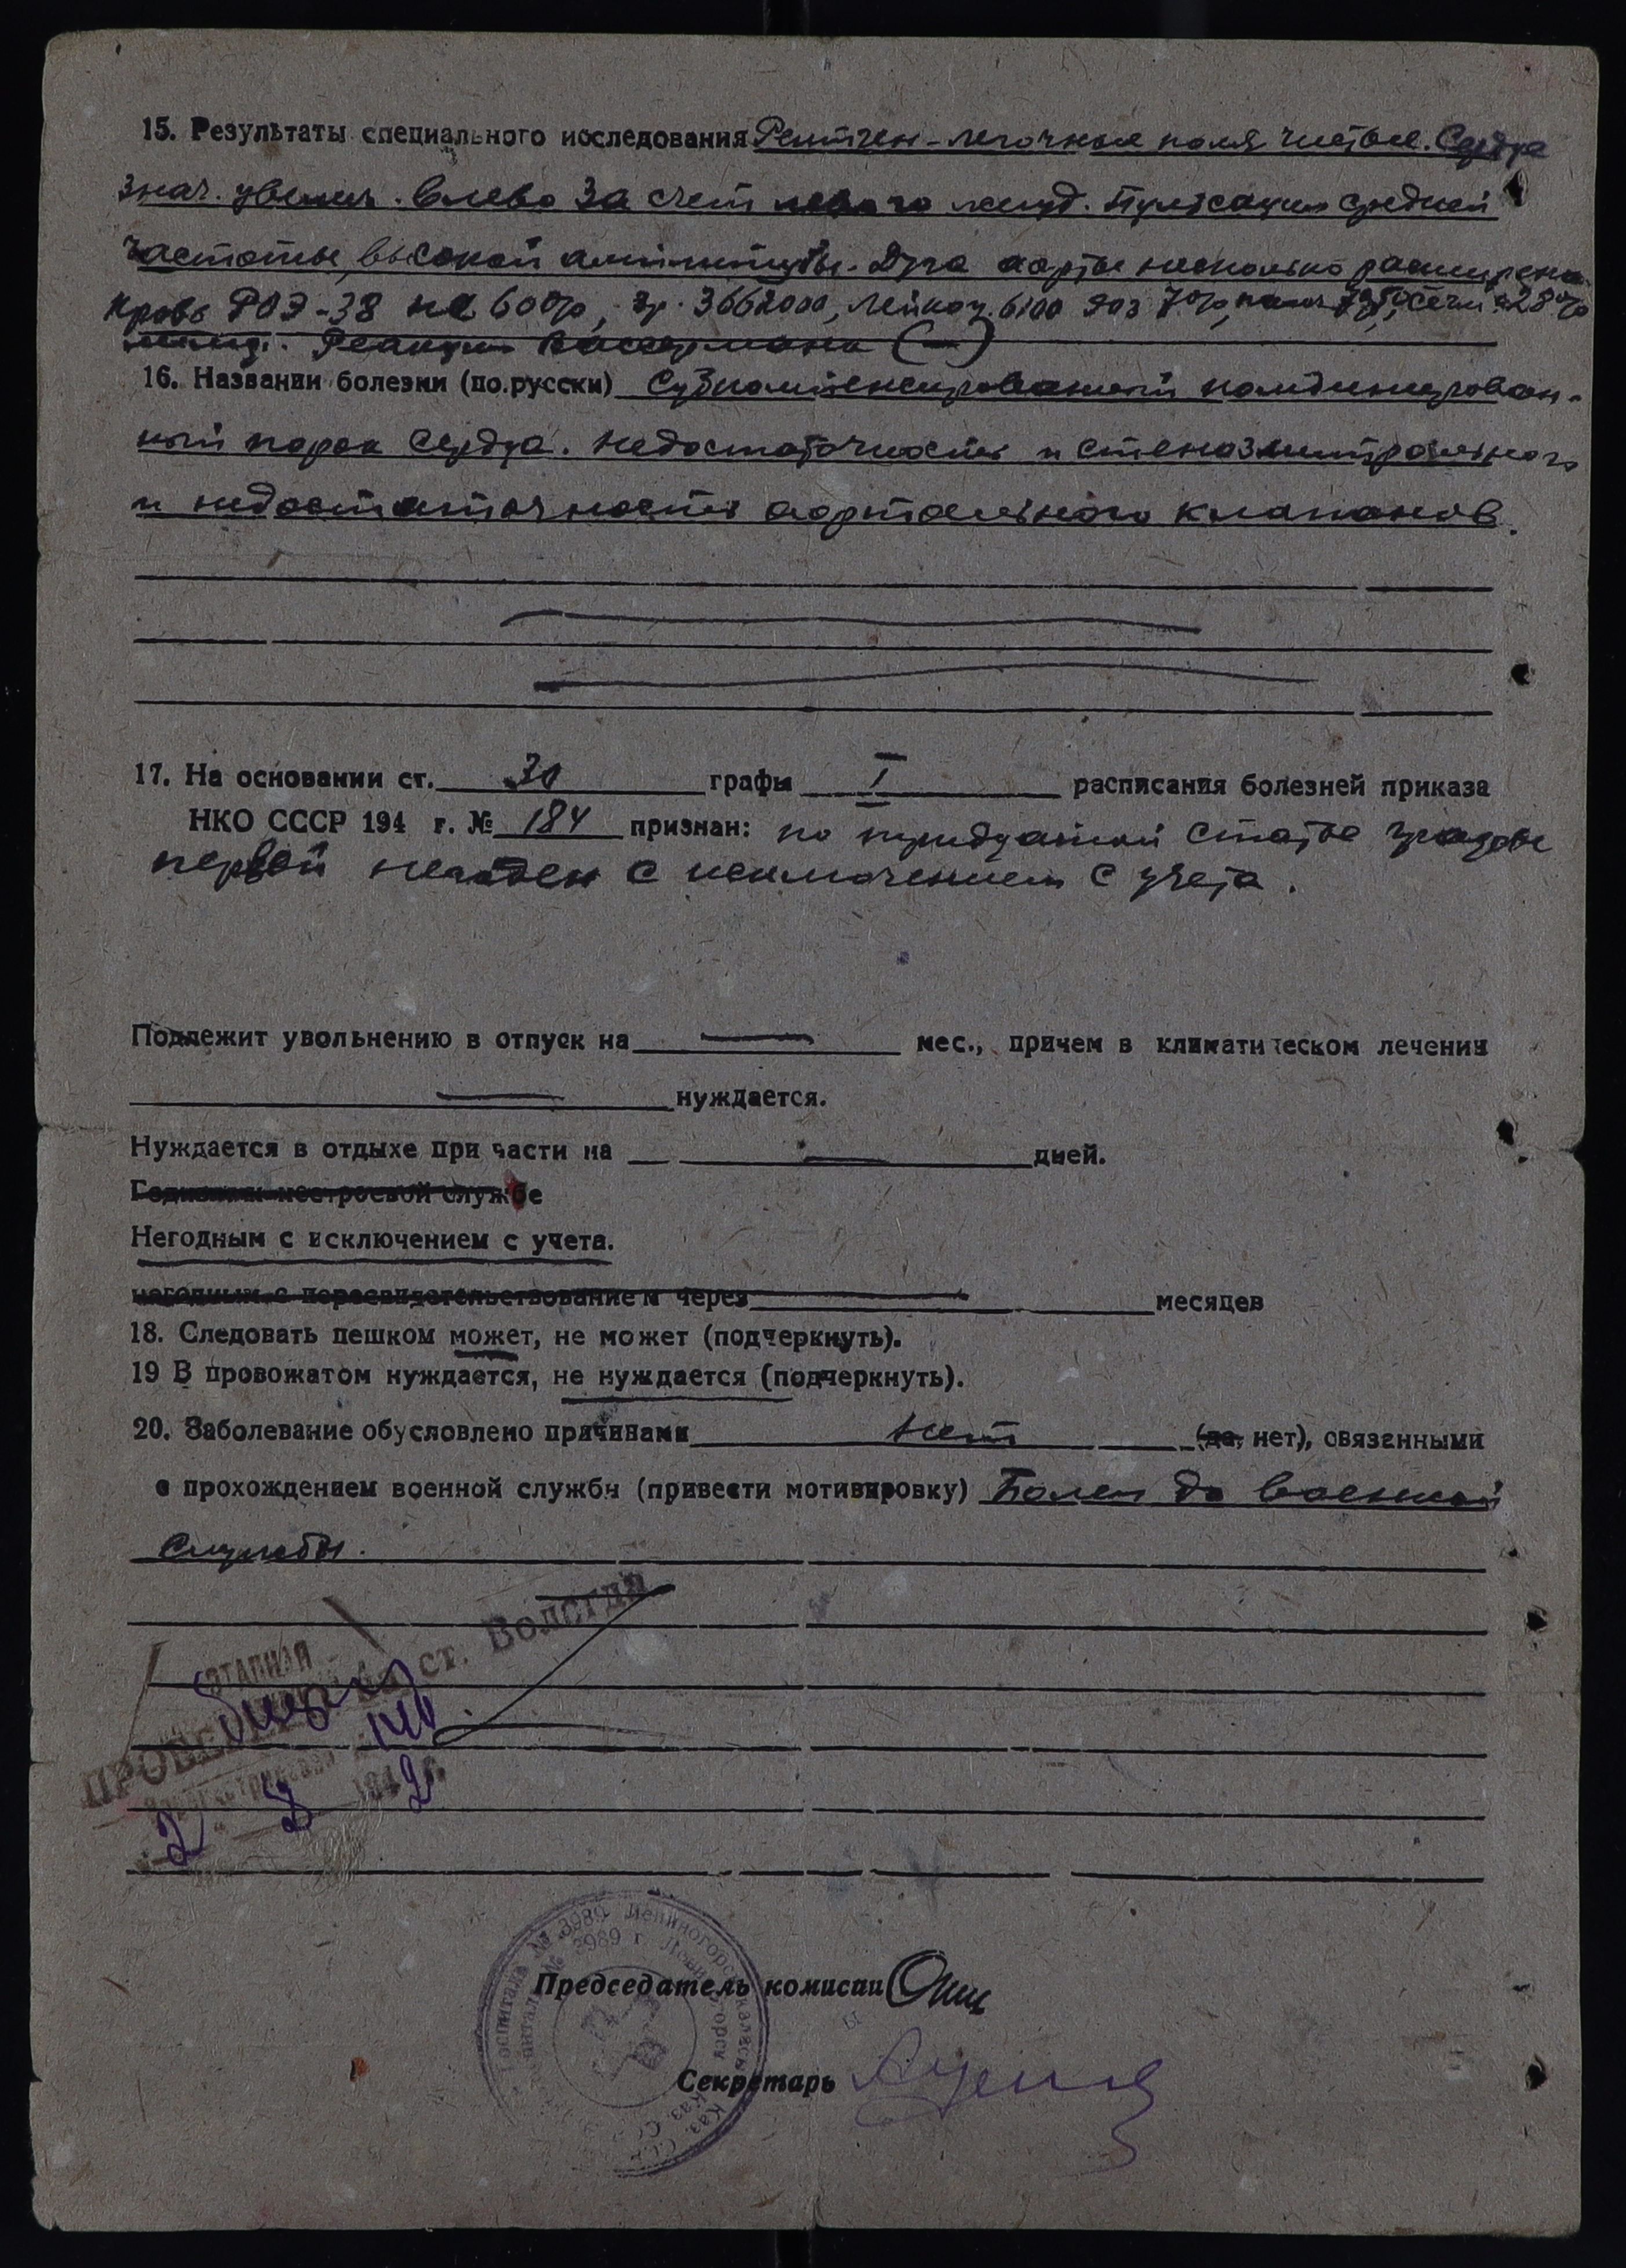 15. Результаты специального исследования Рентген - легочные поля чистые. Сердце
знач. увелич. влево за счет левого желуд. Пульсация средней
частоты, высокой амплитуды. Дуга аорты несколько расширена
Кровь РОЭ-38 на 60%, эр. 3662000, лейкоц. 6100 эоз 7%,
Реакция Вассермана (—)
16. Названии болезни (по.русски) Субкомпенсированный комбинирован-
ный порок сердца. Недостаточность и стеноз митрального
и недостаточность аортального клапанов.
17. На основании ст. 30 графы I расписания болезней приказа
НКО СССР 194 г. № 184 признан: по тридцатой статье графы
первой негоден с исключением с учета.
Подлежит увольнению в отпуск на — мес., причем в климатическом лечении
— нуждается.
Нуждается в отдыхе при части на — дней.
Годным к нестроевой службе
Негодным с исключением с учета.
негодным с пересвидетельствованием через месяцев
18. Следовать пешком может, не может (подчеркнуть).
19 В провожатом нуждается, не нуждается (подчеркнуть).
20. Заболевание обусловлено причинами нет (да, нет), связанными
с прохождением военной службы (привести мотивировку) Болен до военной
службы.
ЭТАПНАЯ
ст. Вологда
2 8 1942 г.
Госпиталь № 3989 Лениногорск
Председатель комисии
Секретарь